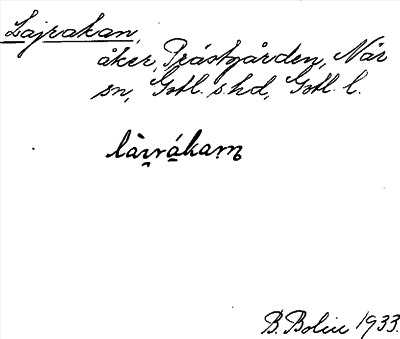 Lajrakan,
åker, Prästgården, När
sn, Gotl. s. hd, Gotl. l.
lài̯rákam
B. Bolin 1933.